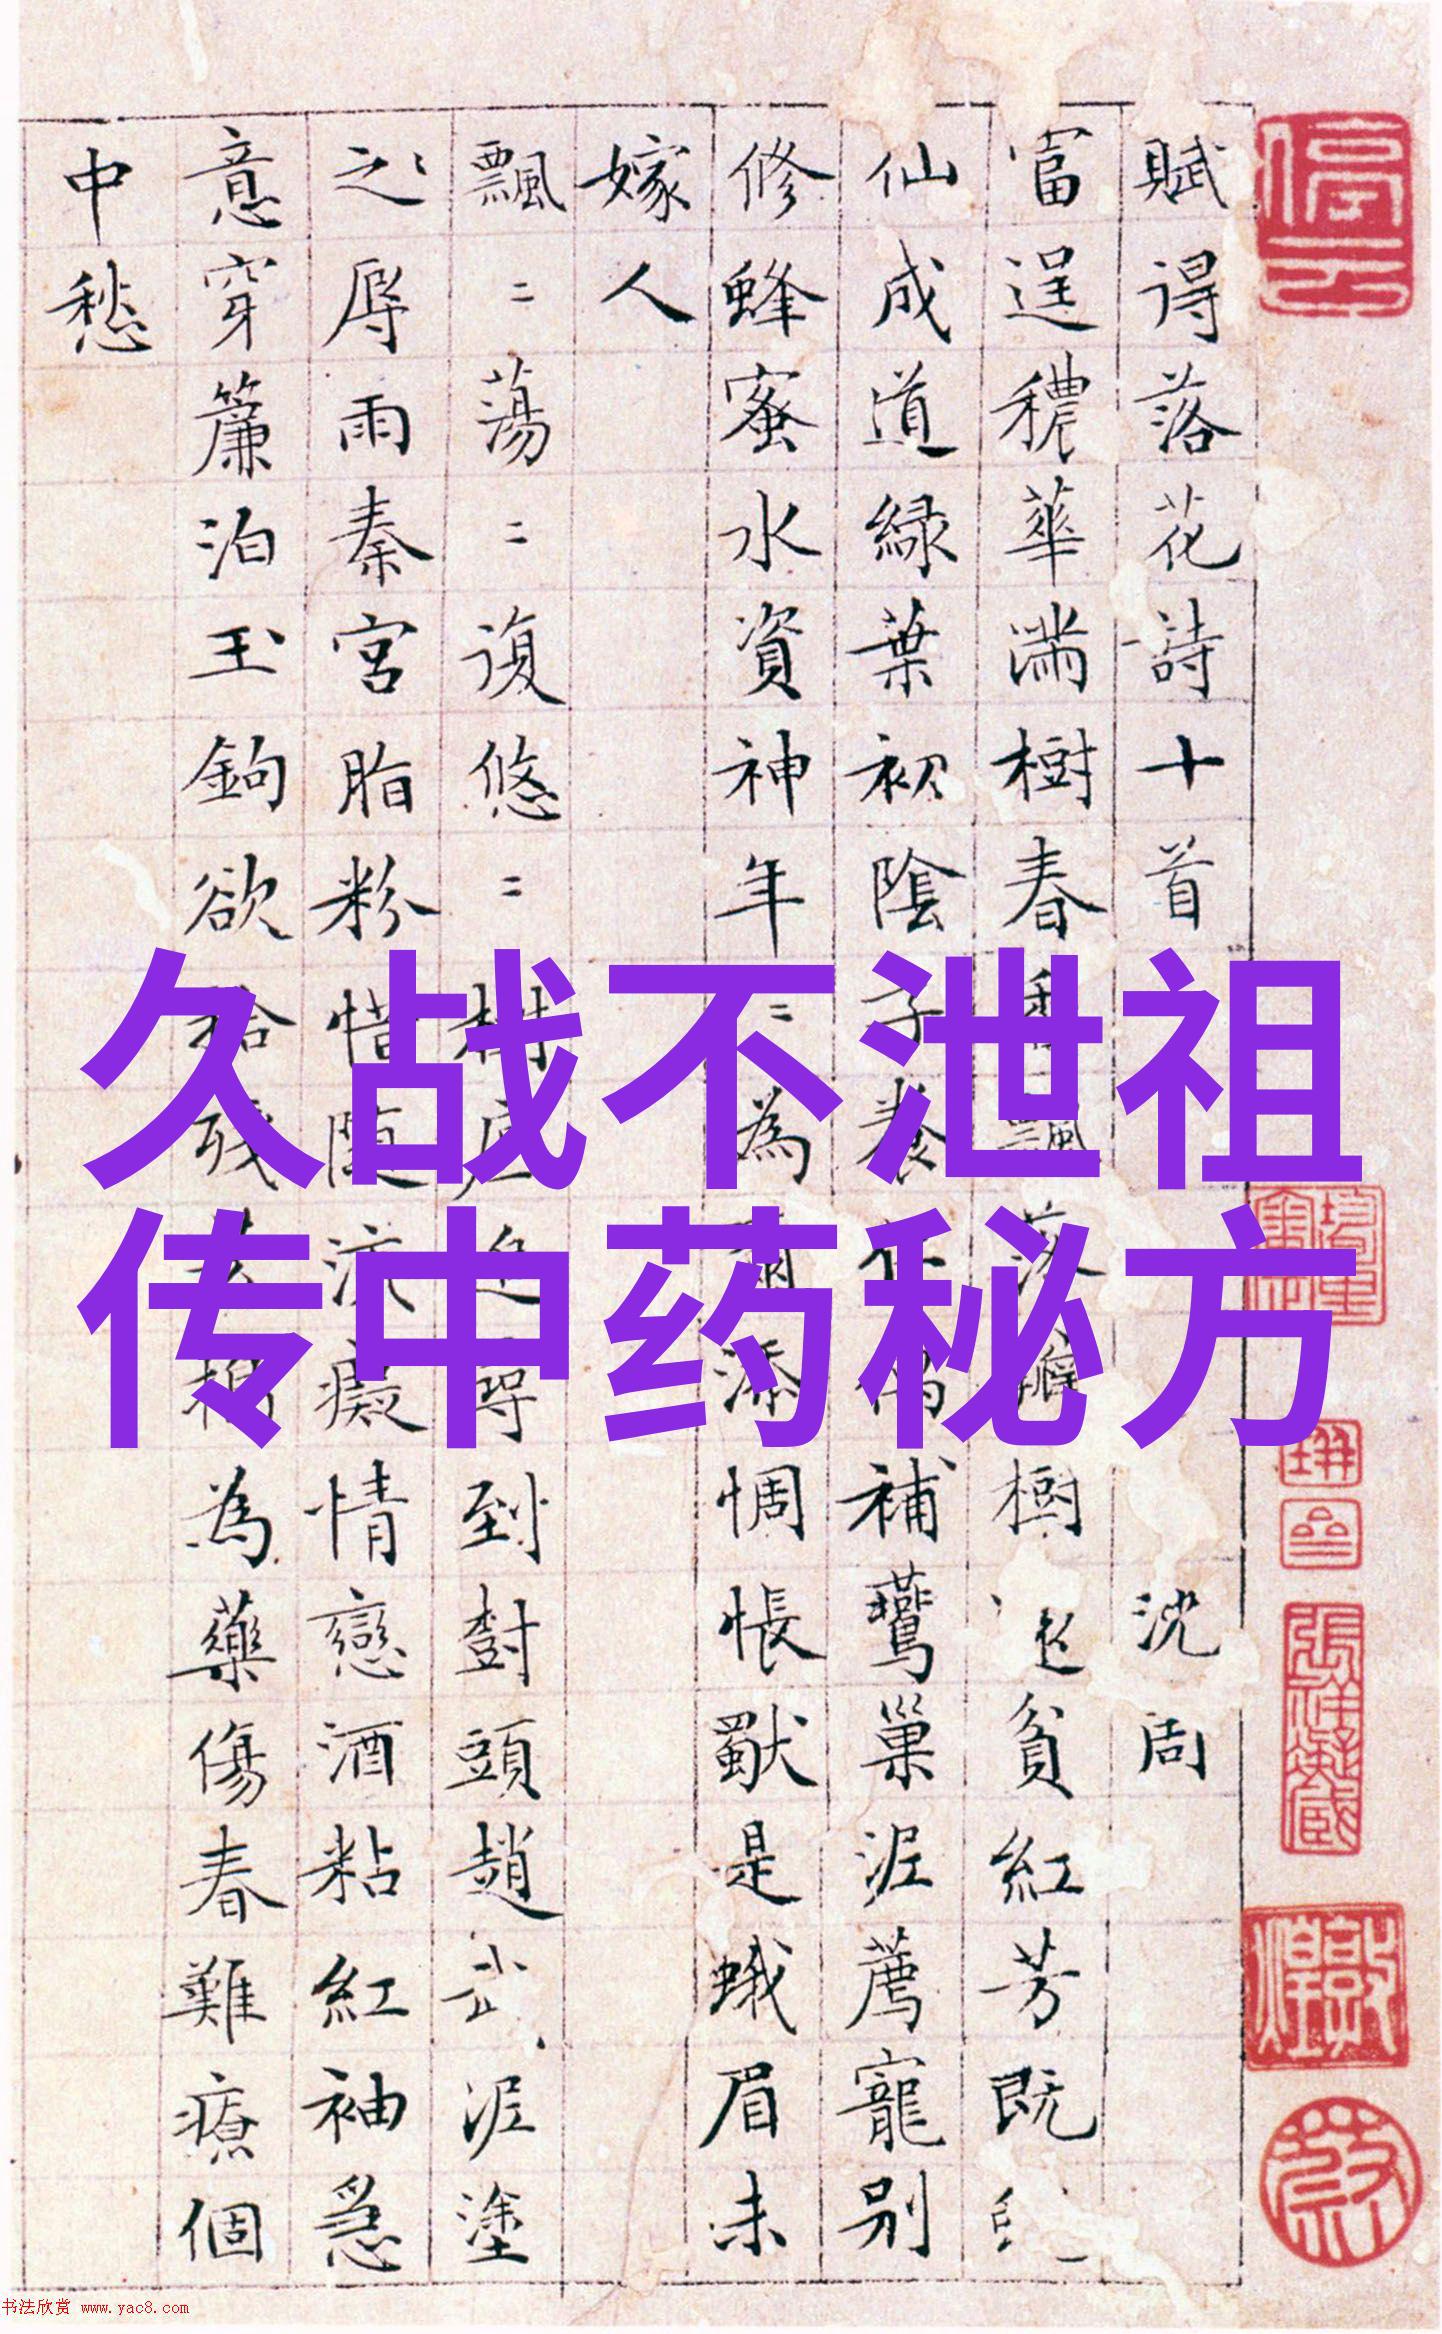 賦得落花詩十首 沈周
富逞穠華滿樹春 香飄落瓣樹 貧紅芳既
仙成道綠葉初陰子養 補鶯巢泥薦寵別
修蜂蜜水資神年=為 添惆悵獸是蛾眉未
嫁人
飄=蕩=復悠= 樹 到對頭趙武泥塗
之辱雨秦宮脂粉惜隨 癡情戀酒粘紅袖急
意穿簾泊玉鉤欲拾殘 為藥傷春難療個
中愁
久战不泄祖
传中药秘方
停云
书法欣赏 www.yac8.com